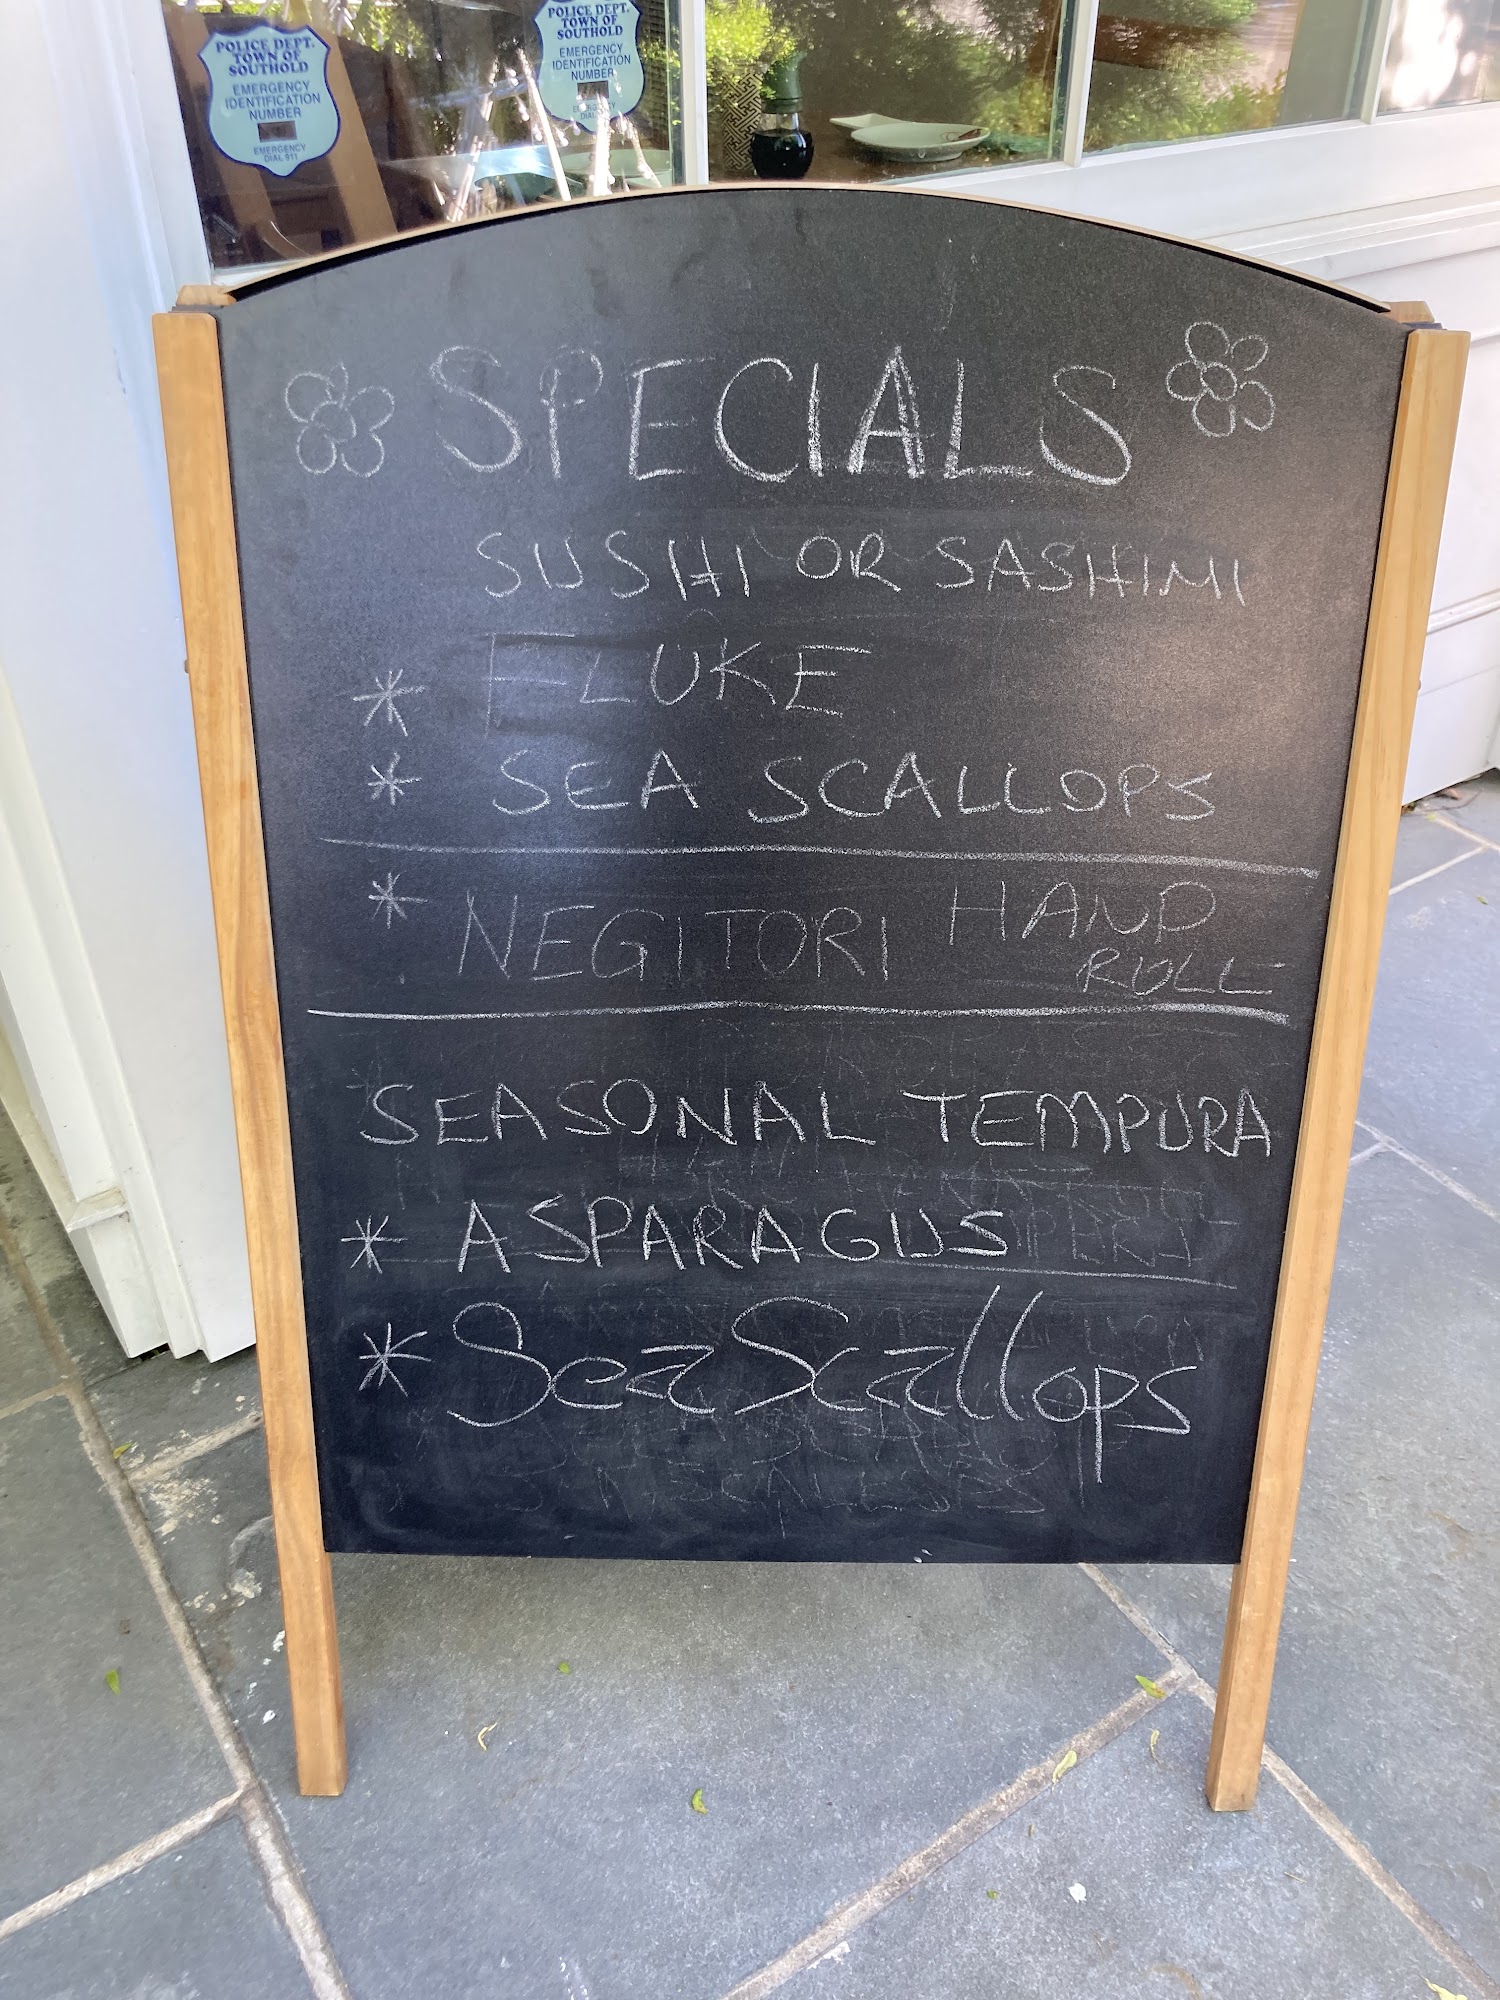 POLICE DEPT.
TOWN OF
SOUTHOLD
EMERGENCY
IDENTIFICATION
NUMBER
EMERGENCY
DIAL 911
POLICE DEPT.
TOWN OF
SOUTHOLD
EMERGENCY
IDENTIFICATION
NUMBER
SPECIALS
SUSHI OR SASHIMI
* FLUKE
* SEA SCALLOPS
* NEGITORI HAND
ROLL
SEASONAL TEMPURA
* ASPARAGUS
* Sea Scallops